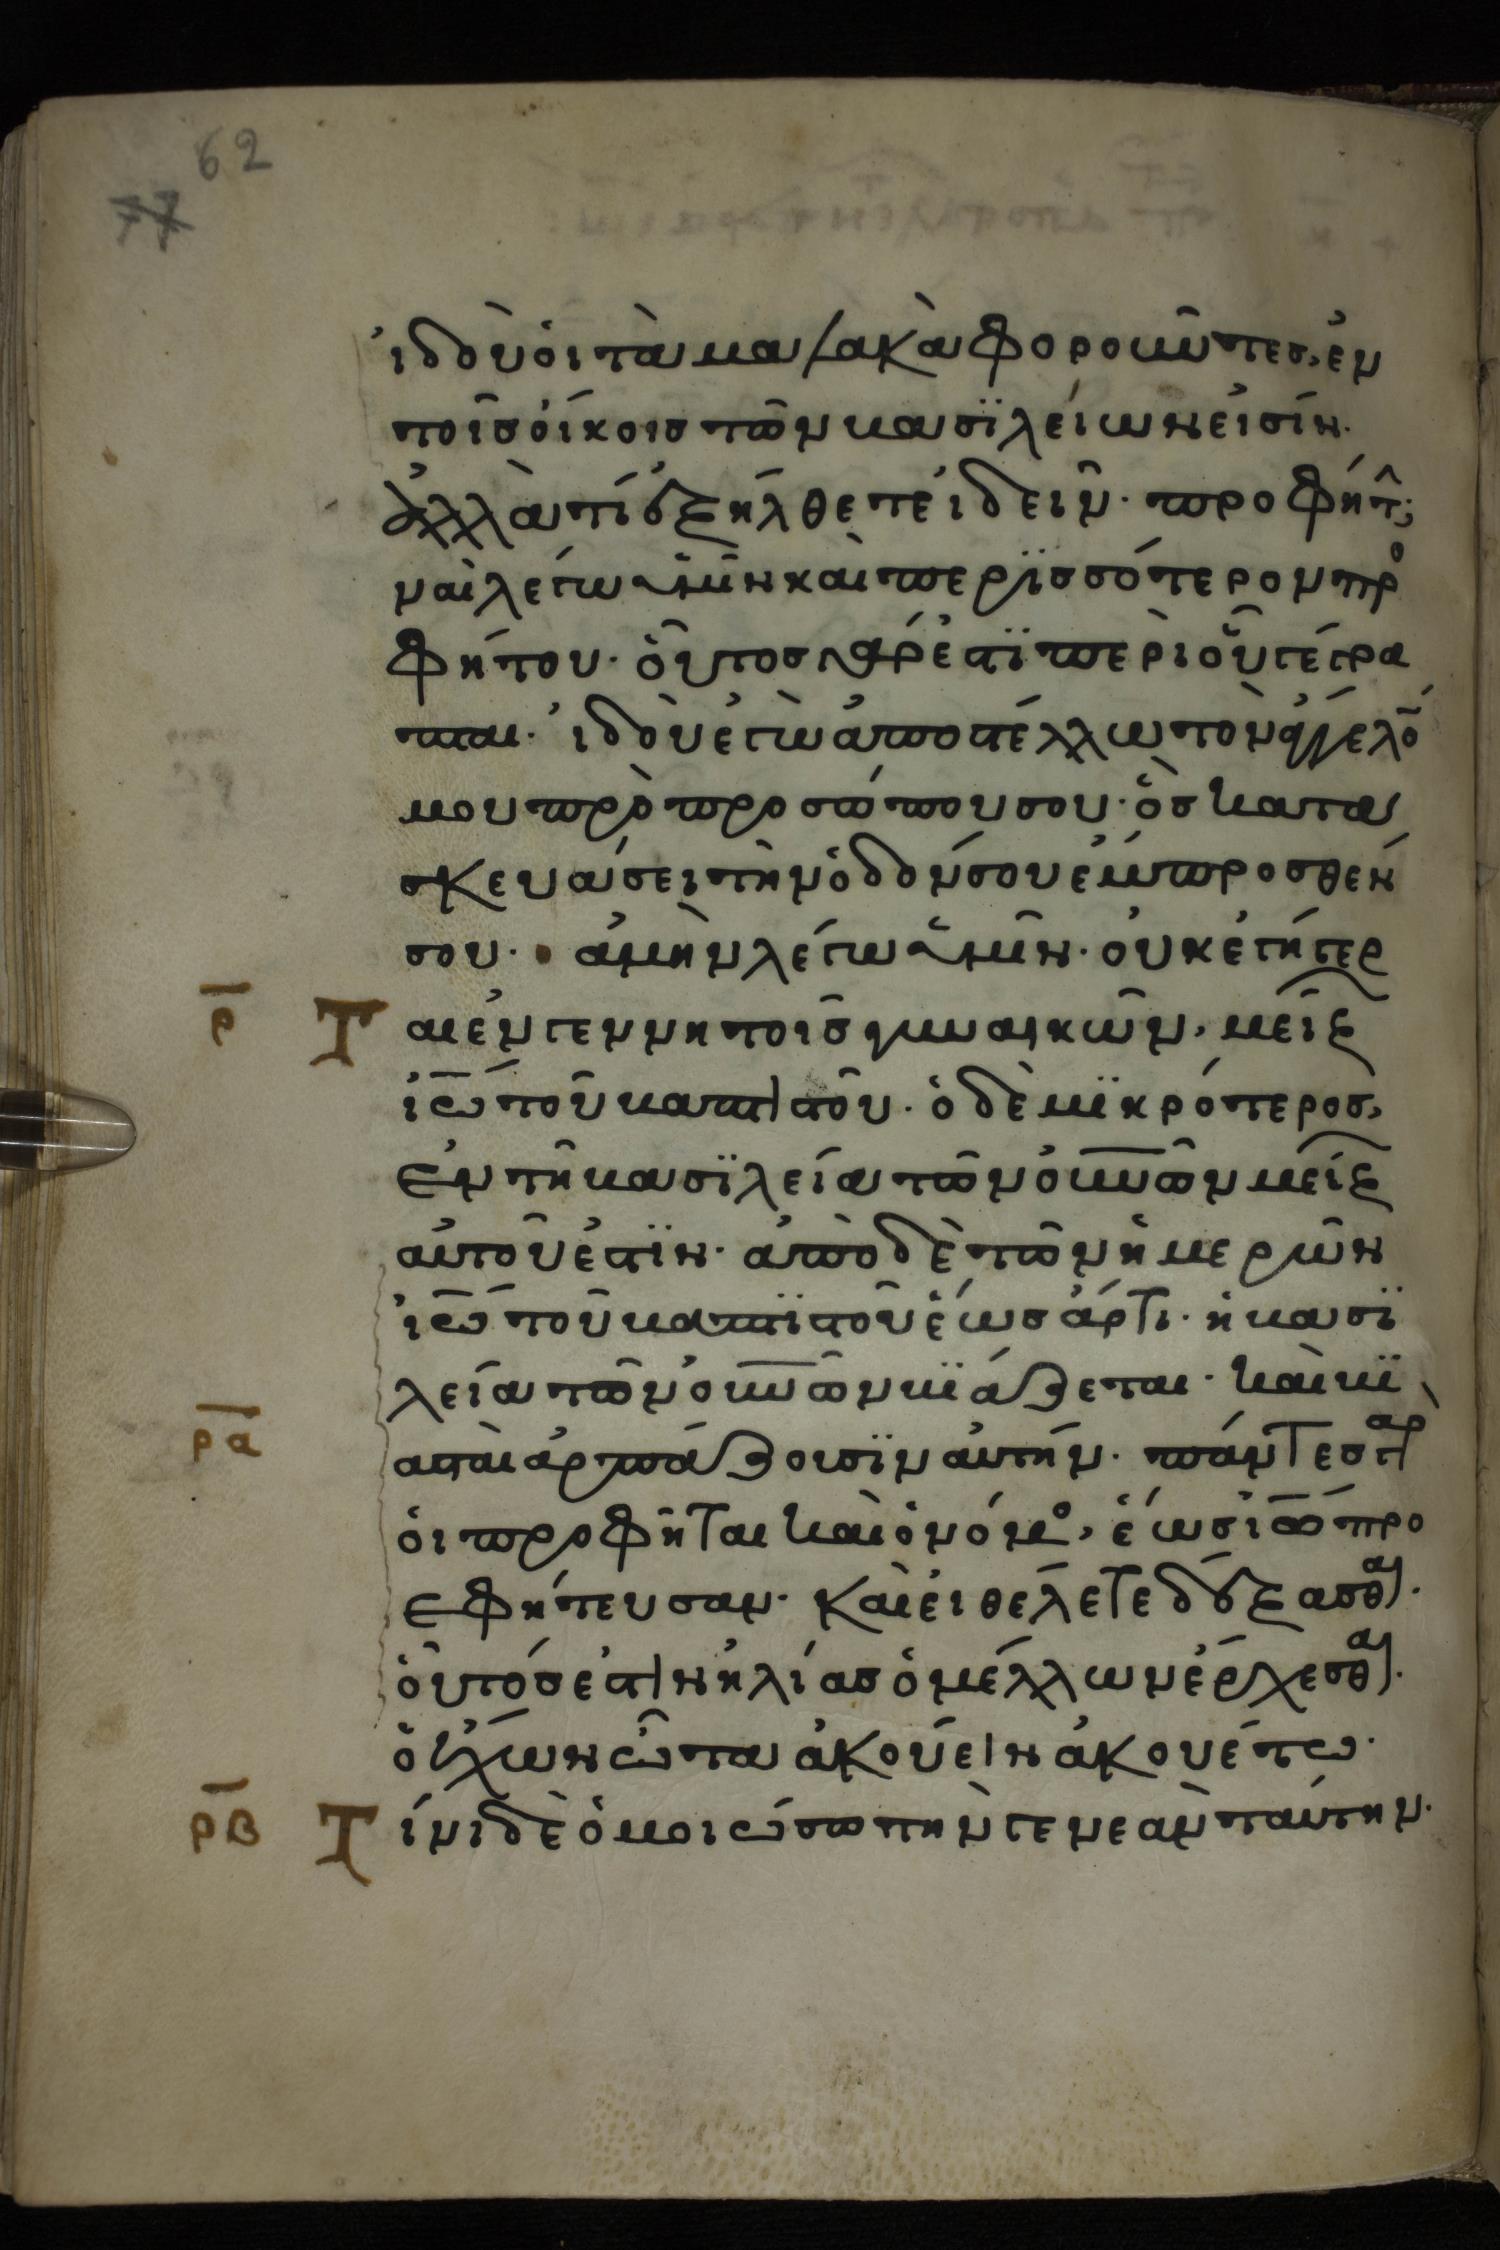 62
77
ἰδοὺ οἱ τὰ μαλακὰ φοροῦντες, ἐν
τοῖς οἴκοις τῶν βασϊλείων εἰσίν.
ἀλλὰ τί ἐξήλθετε ἰδεῖν. προφήτ;
ναὶ λέγω ὑμῖν καὶ περϊσσότερον προ
φήτου. οὗτος γάρ ἐστϊ περὶ οὗ γέγρα
πται. ἰδοὺ ἐγὼ ἀποστέλλω τὸν ἄγγελό
μου πρὸ προσώπου σου. ὃς κατα
σκευάσει τὴν ὁδόν σου ἔμπροσθέν
σου. ἀμὴν λέγω ὑμῖν. οὐκ ἐγήγερ
ρ Ται ἐν γεννητοῖς γυναικῶν, μείζ
ἰω τοῦ βαπτιστοῦ. ὁ δὲ μϊκρότερος,
ἐν τῆ βασϊλεία τῶν οὐνῶν μείζ
αὐτοῦ ἐστϊν. ἀπὸ δὲ τῶν ἡμερῶν
ἰω τοῦ βαπτϊστοῦ ἕως ἄρτι. ἡ βασϊ
λεία τῶν οὐνῶν βϊάζεται. καὶ βϊ
ρα ασταὶ ἁρπάζουσϊν αὐτήν. πάντες γὰρ
οἱ προφῆται καὶ ὁ νόμο, ἕως ἰω προ
εφήτευσαν. καὶ εἰ θέλετε δέξασθαι.
οὗτός ἐστιν ἠλίας ὁ μέλλων ἔρχεσθαι.
ὁ ἔχων ὦτα ἀκούειν ἀκουέτω.
ρβ Τίνι δὲ ὁμοιώσω τὴν γενεὰν ταύτην.